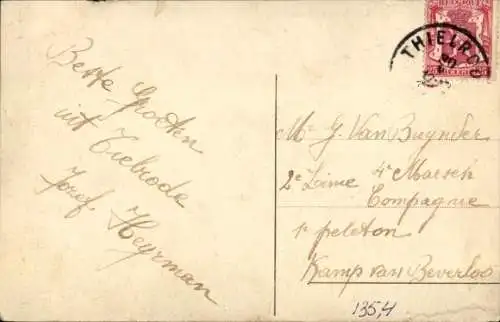 Beste Groeten
uit Tielrode
Jozef Heyrman
THIELRO
BELGIQUE
Mr J. Van Buynder
2e Linie 4e March
Compagnie
1e peleton
Kamp van Beverloo
135,4